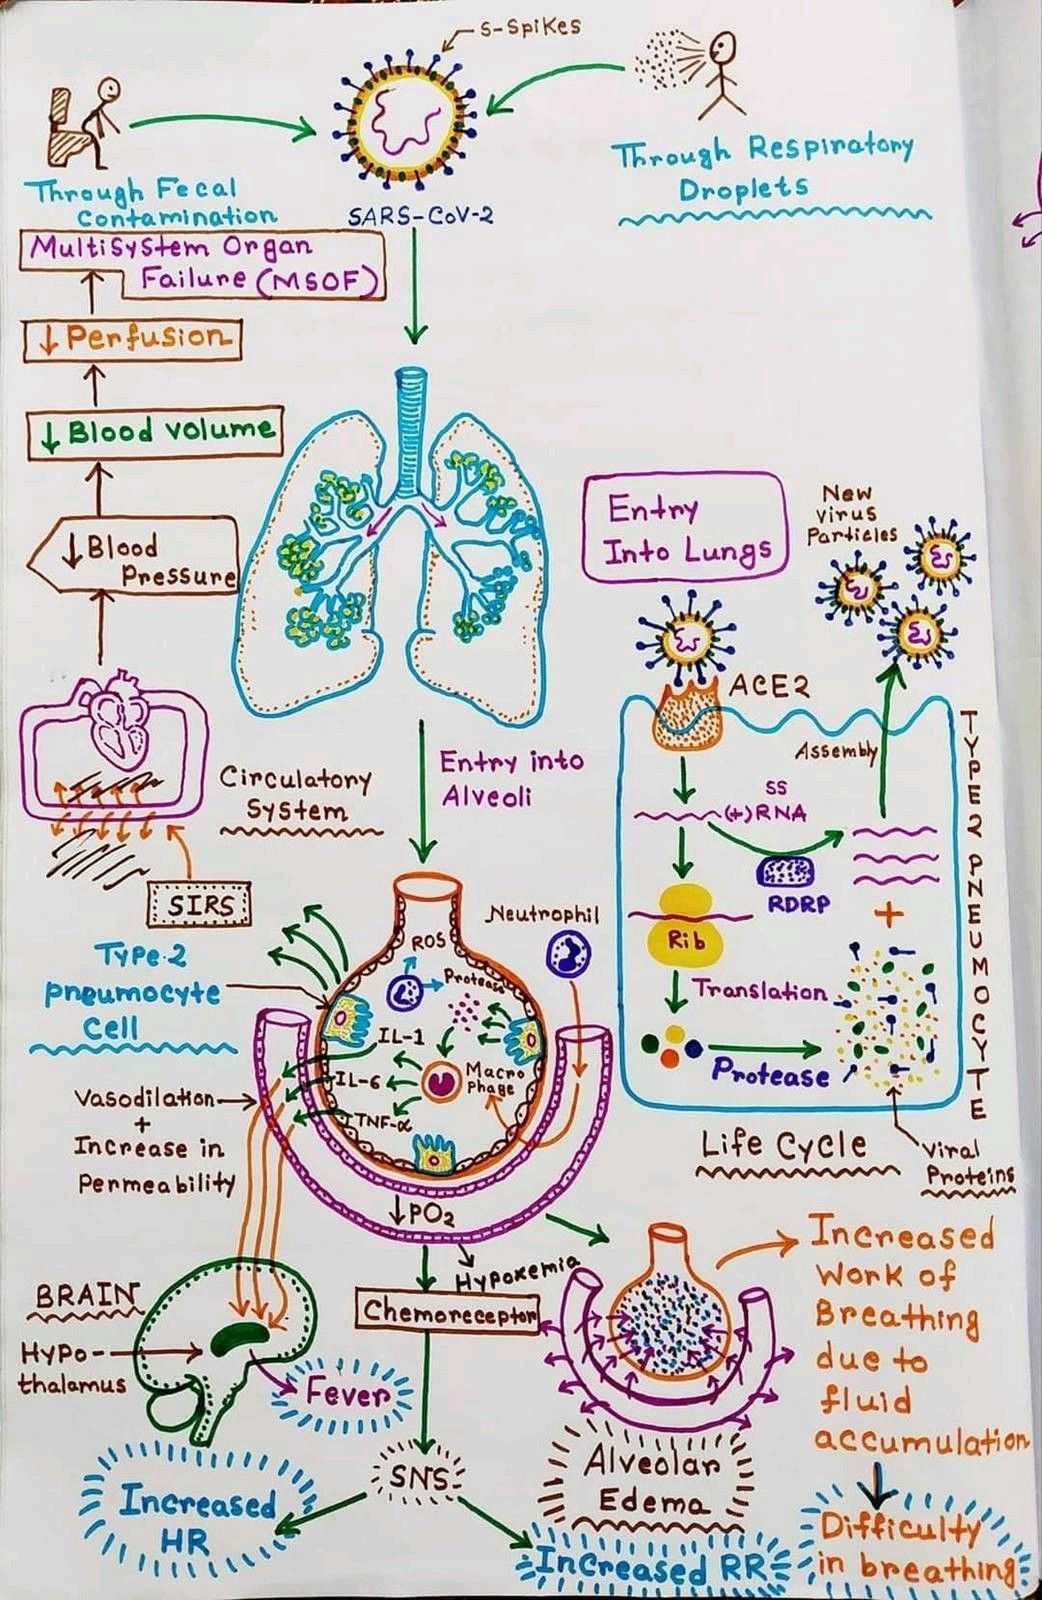 S-Spikes
Through Fecal
Contamination
SARS-CoV-2
Through Respiratory
Droplets
Multisystem Organ
Failure (MSOF)
↓ Perfusion
↓ Blood volume
↓ Blood
Pressure
Circulatory
System
SIRS
Entry into
Alveoli
Entry
Into Lungs
New
virus
Particles
ACE2
Assembly
SS
(+)RNA
RDRP
+
Rib
Translation
Protease
Viral
Proteins
TYPE 2 PNEUMOCYTE
Life Cycle
Type-2
pneumocyte
Cell
Neutrophil
ROS
Protease
IL-1
IL-6
TNF-α
Macro
Phage
Vasodilation
+
Increase in
Permeability
↓PO2
Hypoxemia
Chemoreceptor
BRAIN
Hypo-
thalamus
Fever
SNS
Increased
HR
Increased RR
Alveolar
Edema
Increased
Work of
Breathing
due to
fluid
accumulation
Difficulty
in breathing